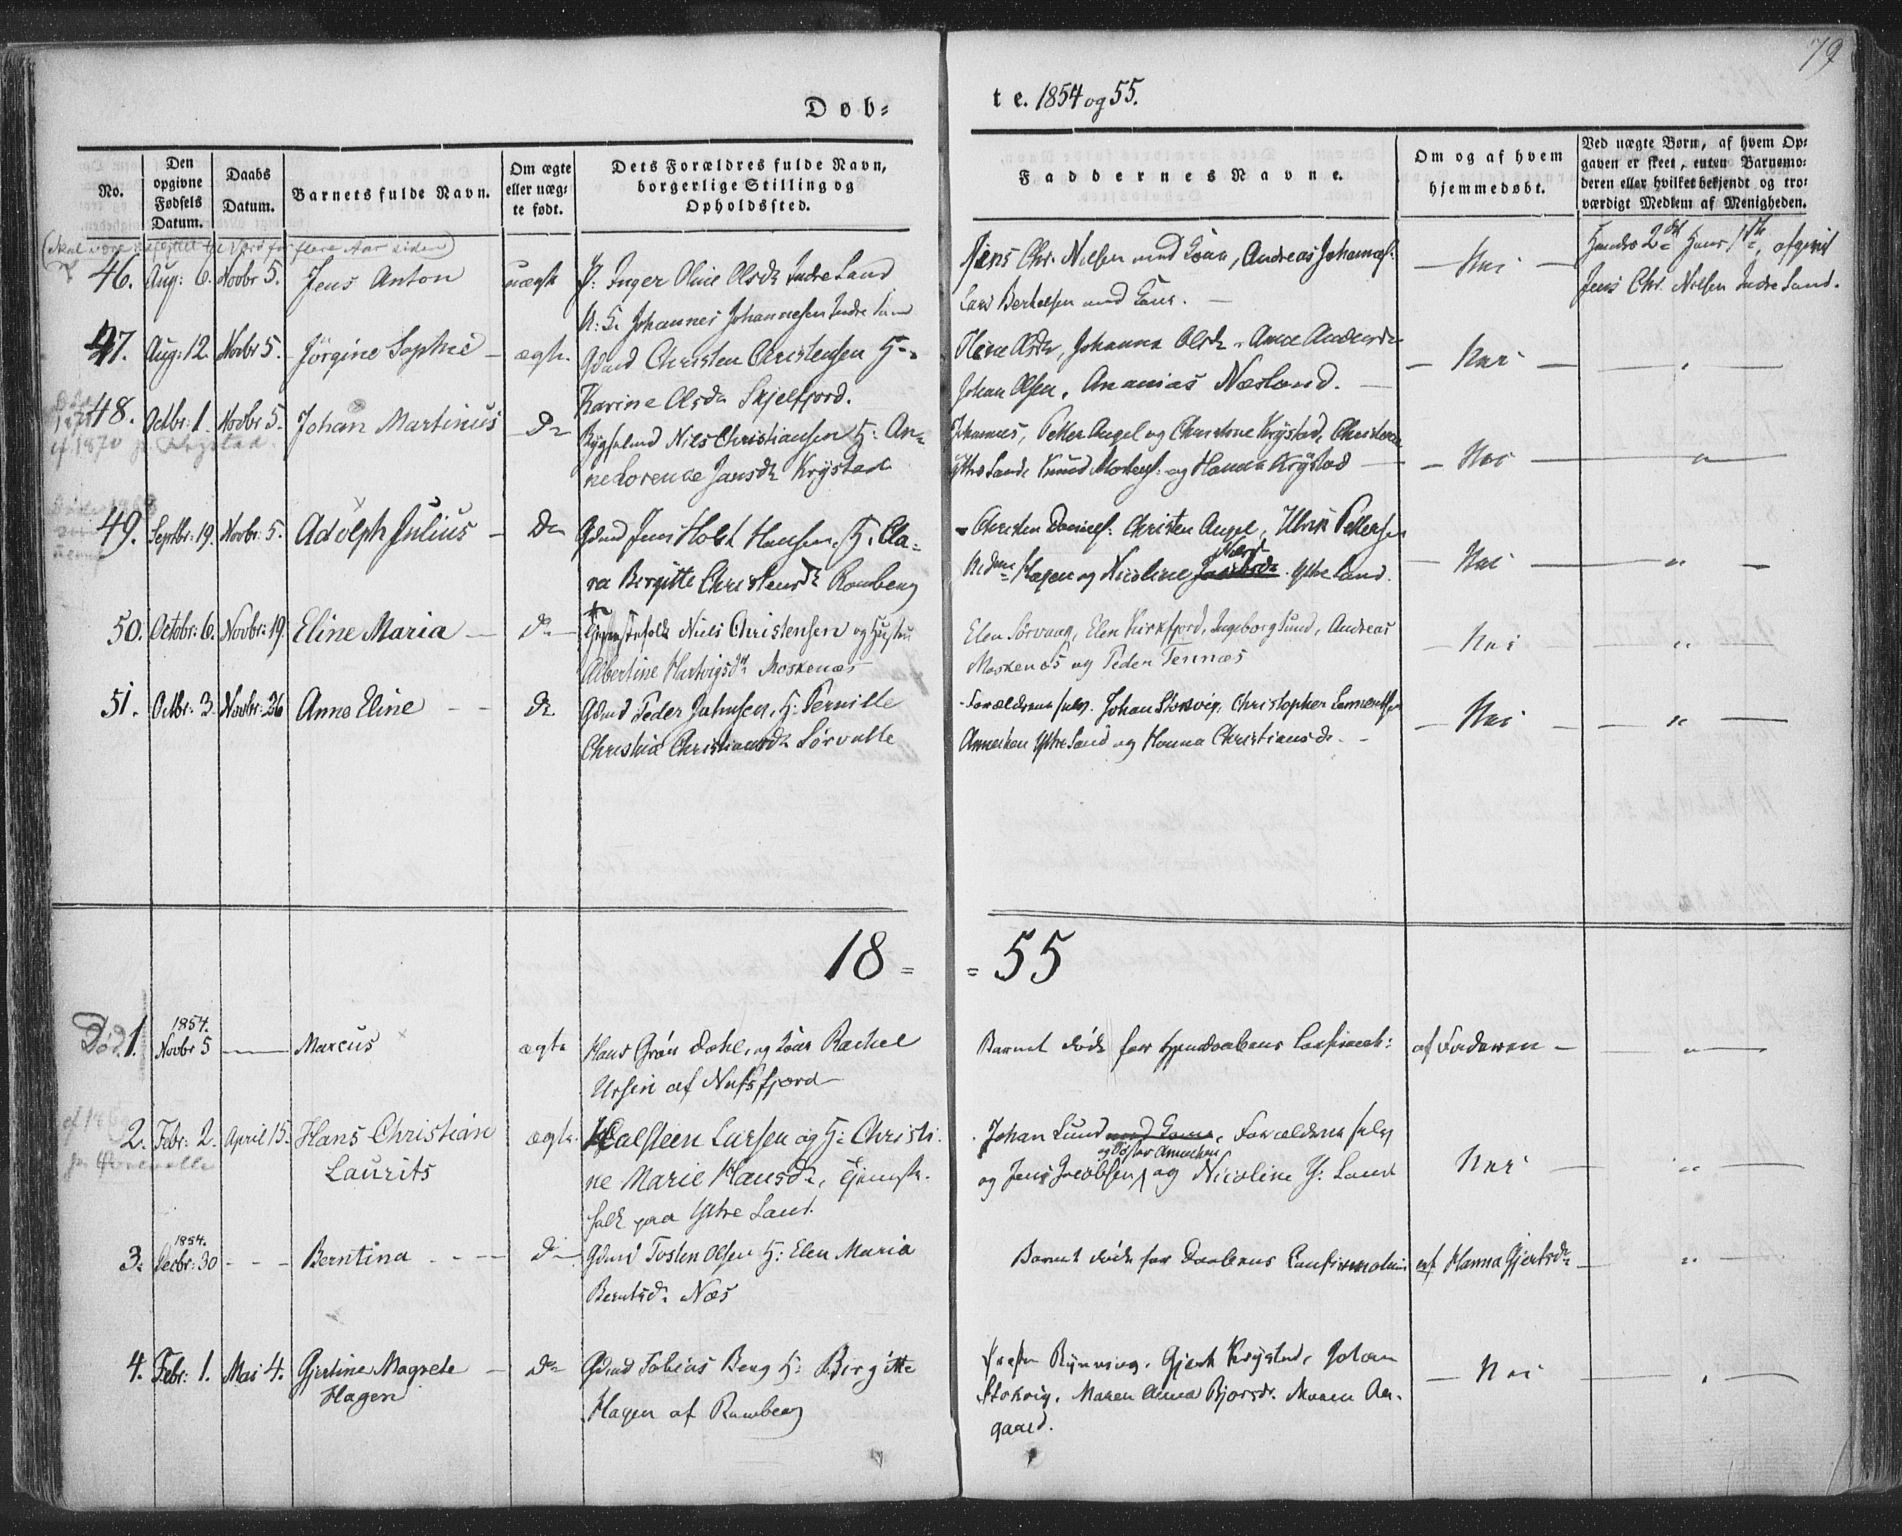 79
Døb-
te. 1854 og 55.
No.
Den opgivne Fødsels Datum.
Daabs Datum.
Barnets fulde Navn.
Om ægte eller uægte født.
Dets Forældres fulde Navn, borgerlige Stilling og Opholdssted.
Faddernes Navne.
Om og af hvem hjemmedøbt.
Ved uægte Børn, af hvem Opgaven er skeet, enten Barnemoderen eller hvilket bekjendt og troværdigt Medlem af Menigheden.
for flere Aar siden)
46. Aug: 6. Novbr 5. Jens Anton uægte P: Inger Oline Olsdr Indre Sand
U: F. Johannes Johannesen Indre Sand
Jens Chr. Nielsen med Kone, Andreas Johannes:
Lars Berhelsen med Kone. —
— Nei —
Hendes 2det Hans 1ste, afgivet
Jens Chr. Nielsen Indre Sand.
47. Aug: 12. Novbr 5. Jörgine Sophie — ægte. Gdmd Christen Christensen H:
Karine Olsdr Skjelfjord.
Oline Olsdr, Johanna Olsdr, Anne Andersdr
Johan Olsen, Ananias Næsland. —
— Nei —
48. Octbr. 1. Novbr 5. Johan Martinus Do Bygselmd Nils Christiansen H: An-
ne Lorence Jansdr Krystad
Johannes, Petter Angel og Christine Krystad, Christen
Ytre Sand, Knud Mortens: og Hanna Krystad —
— Nei — "
49. Septbr: 19. Novbr: 5. Adolph Julius — Do Gdmd Jens Holst Hansen, H. Cla-
ra Birgitte Christensdr Ramberg
Christen Daniels: Christen Angel, Ulrik Pettersen
Hagen og Nicoline Jacobsdr Ytre Sand.
— Nei — "
50. Octobr: 6. Novbr: 19. Eline Maria — Do — Tjenestefolk Niels Christensen og Hustru
Albertine Hartvigsdr Moskenæs
Elen Sørvaag, Elen Kirkfjord, Ingeborg Sund, Andreas
Moskenæs og Peder Tennæs
— Nei — "
51. Octbr: 3. Novbr: 26 Anne Eline — Do. Gdmd Peder Jahnsen, H: Pernille
Christina Christiansdr Sörvalle
Forældrene selv. Johan Stokvig, Christopher
Annechen Ytre Sand og Hanna Christiansdr. —
— Nei — "
18 =
= 55
Död. 1. 1854. Novbr 5 — Marcus ægte Hans Grön Dahl, og Kone Rachel
Ursin af Nufsfjord
Barnet döde för Hjemdaabens Confirmat:
af Faderen — "
2. Febr: 2. April 15. Hans Christian
Laurits
ægte. Halsteen Larsen og H: Christi-
ne Marie Hansdr, Tjeneste-
folk paa Ytre Sand.
Johan Lund med Kone, Forældrene selv
og Söster Annechen
og Jens Jacobsen og Nicoline Y: Sand
Nei — "
3. 1854. Decbr: 30 - - - Berntina - - - Do — Gdmd Tosten Olsen H: Elen Maria
Berntsdr Næs
Barnet döde för Daabens Confirmation
af Hanna Gjertsdr — "
4. Febr: 1. Mai 4. Gjertine Magrete —
Hagen
Do Gdmd Tobias Berg H: Birgitte
Hagen af Ramberg
Rynning, Gjert Krystad, Johan
Stokvig, Maren Anna Bjorsdr. Maren Aa-
gaard.
— Nei —